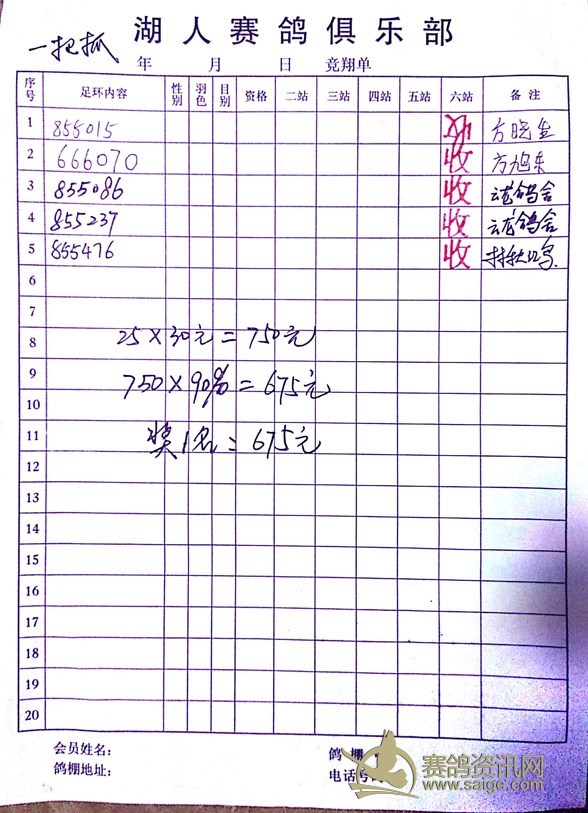 湖人赛鸽俱乐部
一把抓
年 月 日 竞翔单
序号 足环内容 性别 羽色 目别 资格 二站 三站 四站 五站 六站 备注
1 855015 方晓金
2 666070 收 方旭东
3 855086 收 云龙鸽舍
4 855237 收 云龙鸽舍
5 855476 收
6
7
8
9
10
11
12
13
14
15
16
17
18
19
20
25×30元=750元
750×90%=675元
奖1名=675元
会员姓名:
鸽棚
鸽棚地址:
电话号
赛鸽资讯网
www.saigc.com